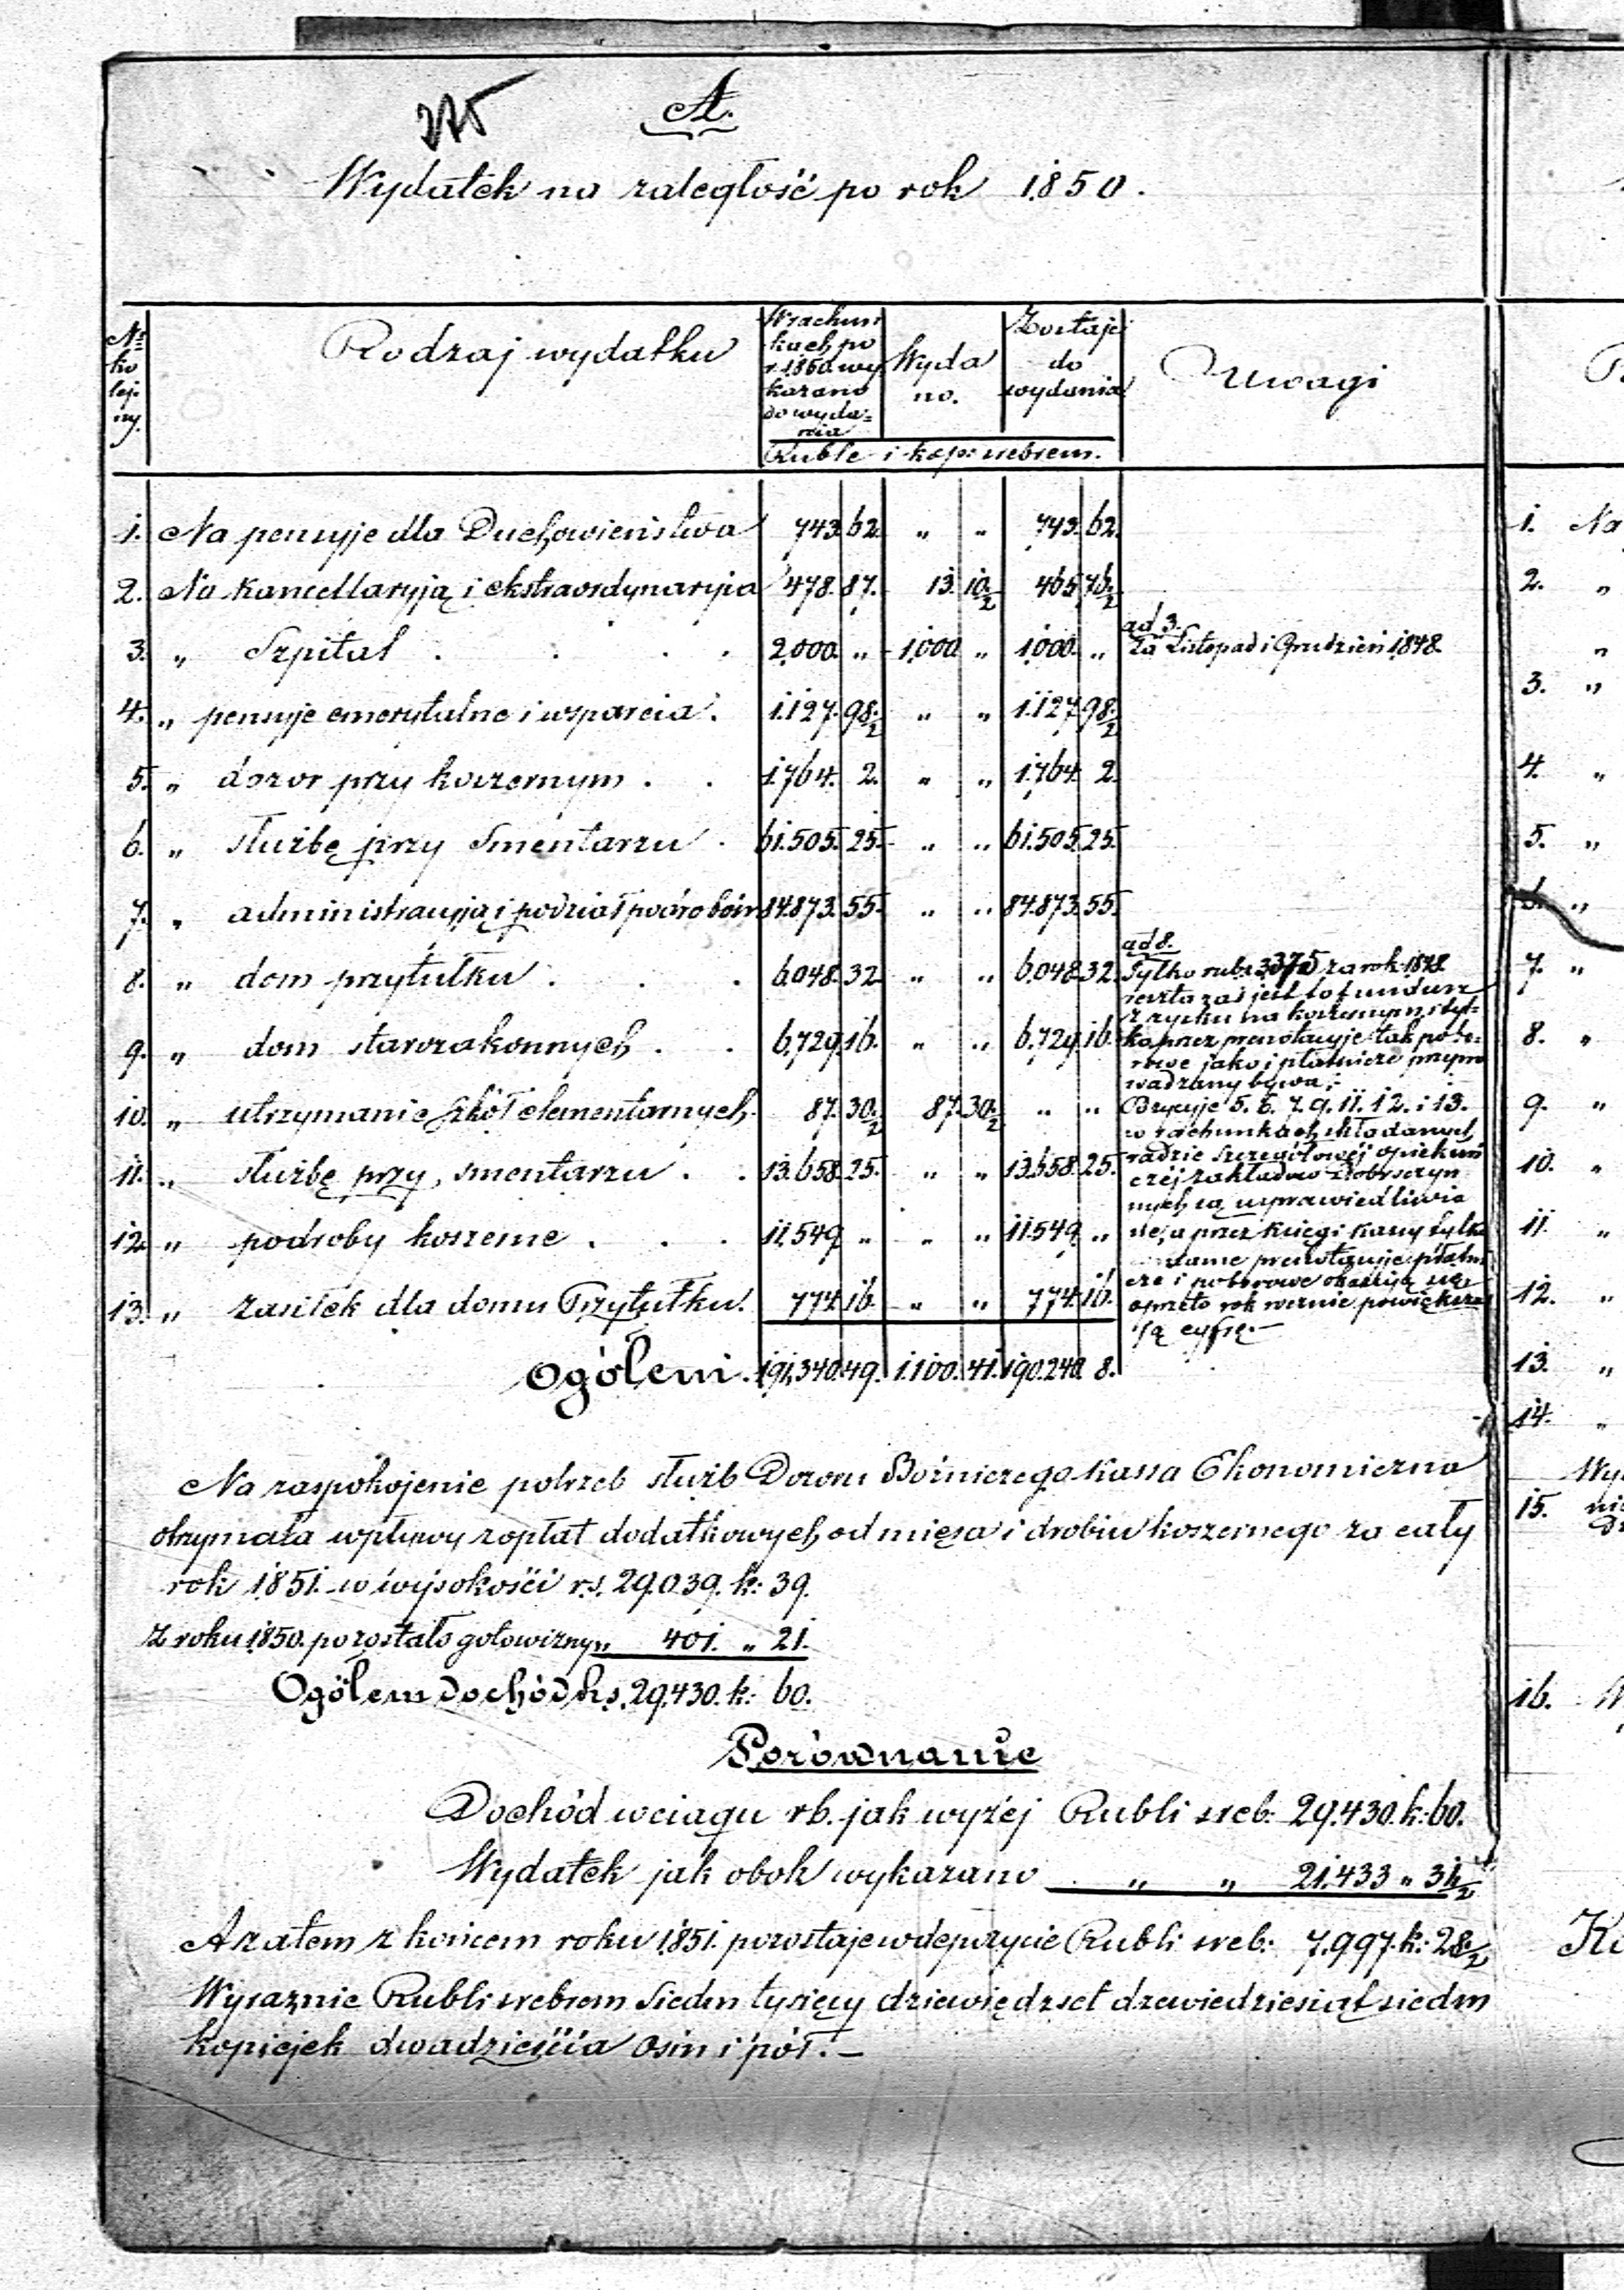 275
A.
Wydatek na zaległość po rok 1850.
№ ko lej- ny. | Rodzaj wydatku | W rachun kach po r. 1850 wy kazano do wyda= nia | Wyda no. | Zostaje do wydania | Uwagi
Ruble i kop: srebrem.
1. Na pensyje dla Duchowieństwa 743. 62. " " 743. 62.
2. Na kancellaryją i ekstraordynaryia 478. 87. 13. 10½ 465 76½
3. " Szpital . . . . 2,000. " 1,000 " 1,000. "
ad 3.
Za Listopad i Grudzień 1848.
4. " pensyje emerytalne i wsparcia. 1.127. 98½ " " 1.127 98½
5. " dozor przy koszernym . . 1.764. 2. " " 1.764. 2.
6. " służbę przy Smentarzu . 61.505. 25. " " 61.505. 25.
7. " administracyją i podział podrobów 84.873. 55. " " 84.873. 55.
8. " dom przytułku . . . 6.048. 32 " " 6.048. 32.
9. " dom starozakonnych . . 6.729. 16. " " 6.729. 16.
10. " utrzymanie Szkół elementarnych. 87. 30½ 87. 30½ " "
11. " służbę przy smentarzu . . 13.658. 25. " " 13.658. 25.
12. " podroby koszerne . . . 11.549. " " " 11.549. "
13. " zasiłek dla domu Przytułku. 774. 16. " " 774. 16.
ad 8.
Tylko rubs 3375 za rok 1848.
reszta zaś jest to fundusz
z zysku na koszernym i tyl-
ko przez prenotacyje tak pobo-
rowe jako i płatnicze przypro
wadzany bywa;
Pozycyje 5. 6. 7. 9. 11. 12. i 13.
w rachunkach składanych
radzie Szczegółowej opiekuń
czej zakładów Dobroczyn
nych są usprawiedliwio
ne, a przez księgi kassy tylko
prenotacyje płatni
cze i poborowe okazują się
oprócz rok rocznie powiększa
ją cyfrę.—
Ogółem. 191,340. 49. 1.100. 41. 190.240. 8.
Na zaspokojenie potrzeb służb Dozoru Bożniczego Kassa Ekonomiczna
otrzymała wpływy z opłat dodatkowych od mięsa i drobiu koszernego za cały
rok 1851. w wysokości r.s. 29.039. k: 39.
Z roku 1850. pozostało gotowizny " 401. " 21.
Ogółem dochód r.s. 29.430. k: 60.
Porównanie
Dochód w ciągu r.b. jak wyżej Rubli sreb: 29.430. k: 60.
Wydatek jak obok wykazano " " 21.433 " 31½
A zatem z końcem roku 1851. pozostaje w depozycie Rubli sreb: 7.997. k: 28½
Wyraznie Rubli srebrem Siedm tysięcy dziewiędzset dzewiedziesiąt siedm
kopiejek dwadzieścia osm i pół.—
1. Na
2. "
"
3. "
4. "
5. "
6. "
7. "
8. "
9. "
10. "
11. "
12. "
13. "
14. "
15.
16.